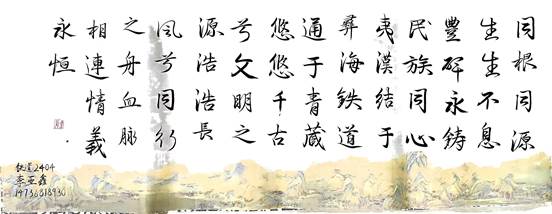 同根同源
生生不息
豐碑永鑄
民族同心
夷漢結于
彝海鉄道
通于青藏
悠悠千古
兮文明之
源浩浩長
風兮同行
之舟血脈
相連情義
永恒
铁道2404
李亚鑫
14736818930